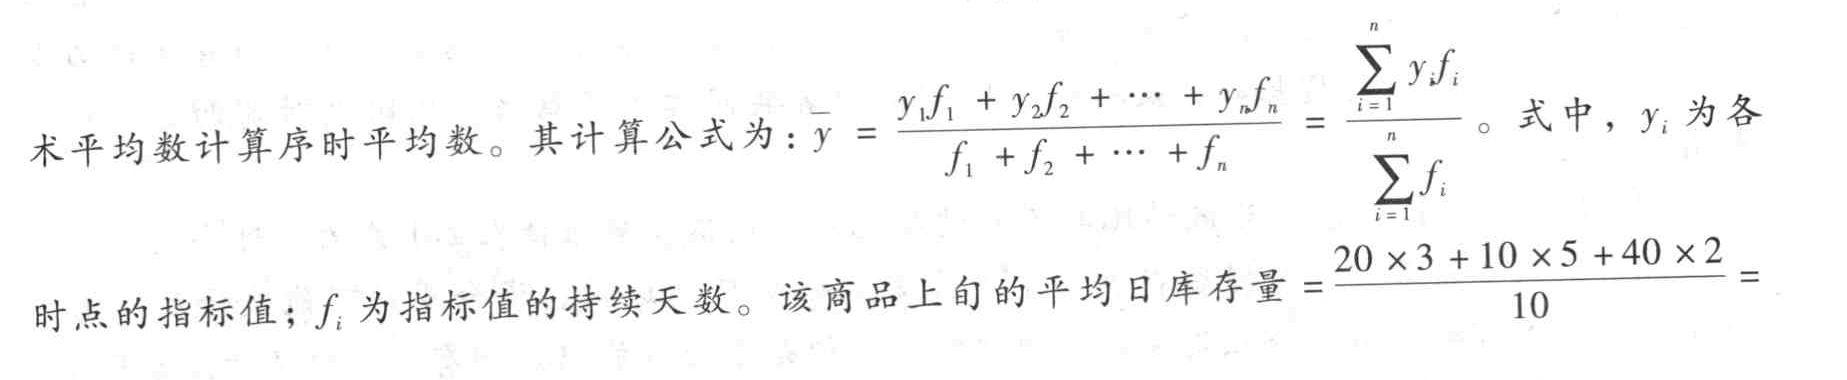 术平均数计算序时平均数。其计算公式为：$\bar{y} = \frac{y_1f_1 + y_2f_2 + \cdots + y_nf_n}{f_1 + f_2 + \cdots + f_n} = \frac{\sum_{i=1}^{n} y_if_i}{\sum_{i=1}^{n} f_i}$。式中，$y_i$ 为各
时点的指标值；$f_i$ 为指标值的持续天数。该商品上旬的平均日库存量 = $\frac{20 \times 3 + 10 \times 5 + 40 \times 2}{10}$ =